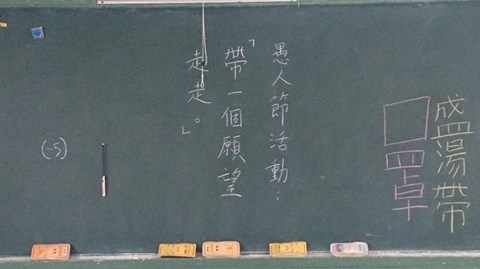 盛湯帶
口罩
愚人節活動：
「帶一個願望
走走。」
(-5)